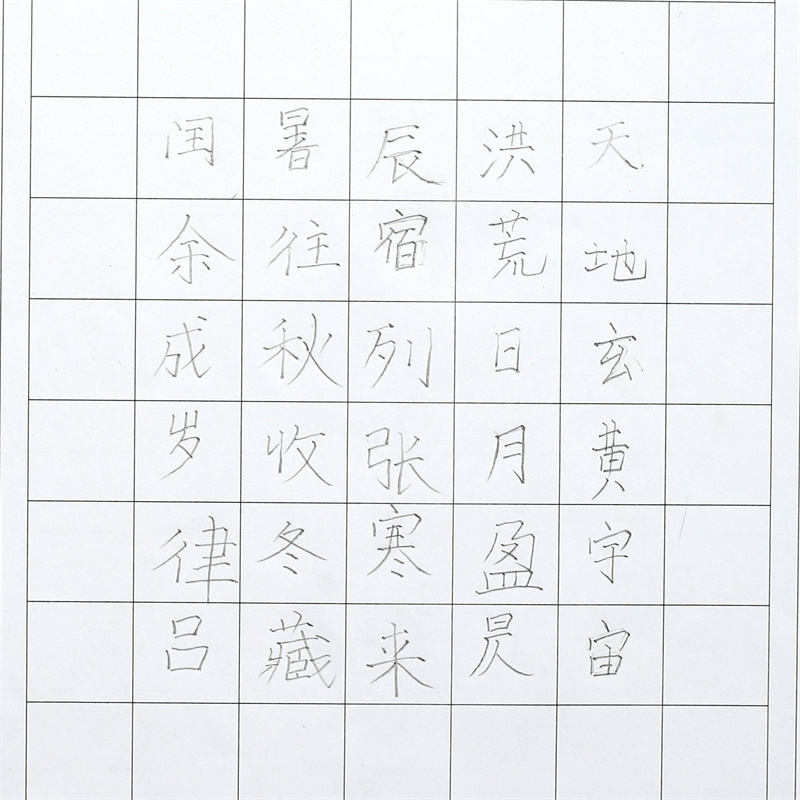 天地玄黄宇宙
洪荒日月盈昃
辰宿列张寒来
暑往秋收冬藏
闰余成岁律吕